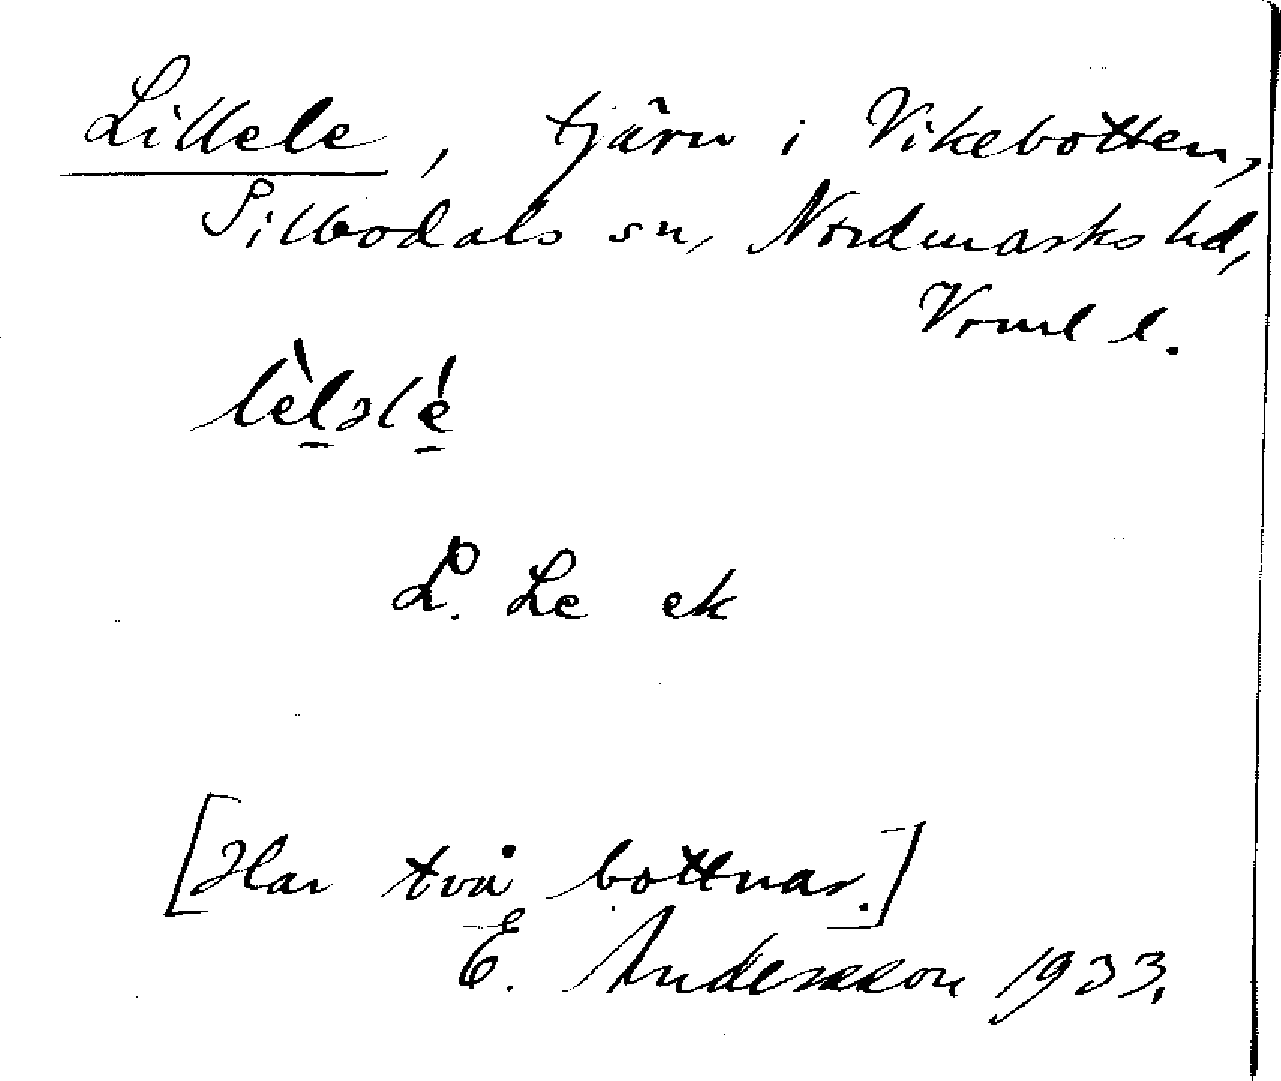 Lillele, tjärn i Vikebotten,
Silbodals sn, Nordmarks hd,
Vrml l.
lèl̠əlé̠
L. Le ek
[Har två bottnar.]
E. Andersson 1933.